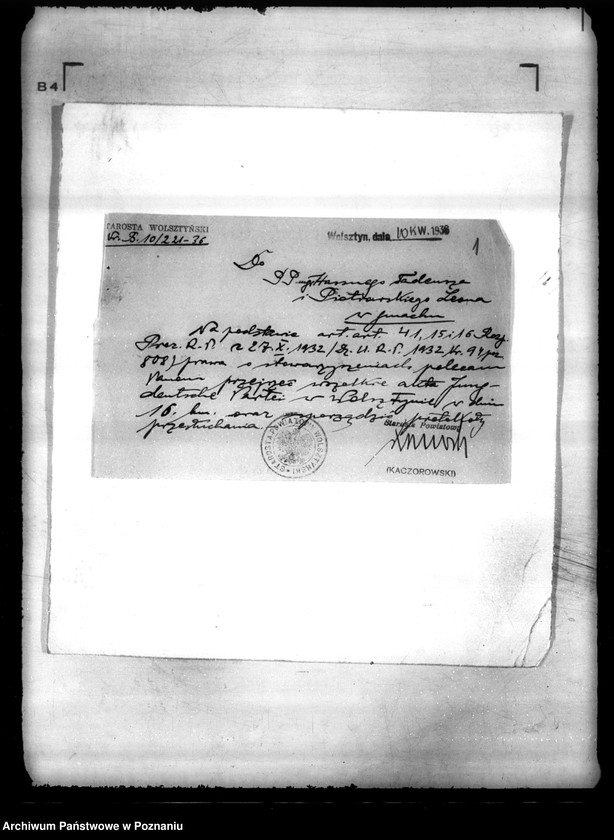 B4
STAROSTA WOLSZTYŃSKI
Nr. B. 10/221-36
Wolsztyn, dnia 10 KW. 1936
1
Do
P.P. mgr Tadeusza
i Pietrzarskiego Leona
w gmachu
Na podstawie art. art. 41, 15 i 16 Rozp.
Prez. R.P. z 27.X.1932 /Dz. U. R.P. 1932 Nr. 94 poz
808/ prawa o stowarzyszeniach polecam
Panom przejrzeć wszelkie akta Jung-
deutsche Partei w Wolsztynie w dniu
16. bm. oraz sporządzić protokóły
przesłuchania.
Starosta Powiatowy
(KACZOROWSKI)
STAROSTA POWIATOWY WOLSZTYŃSKI
Archiwum Państwowe w Poznaniu